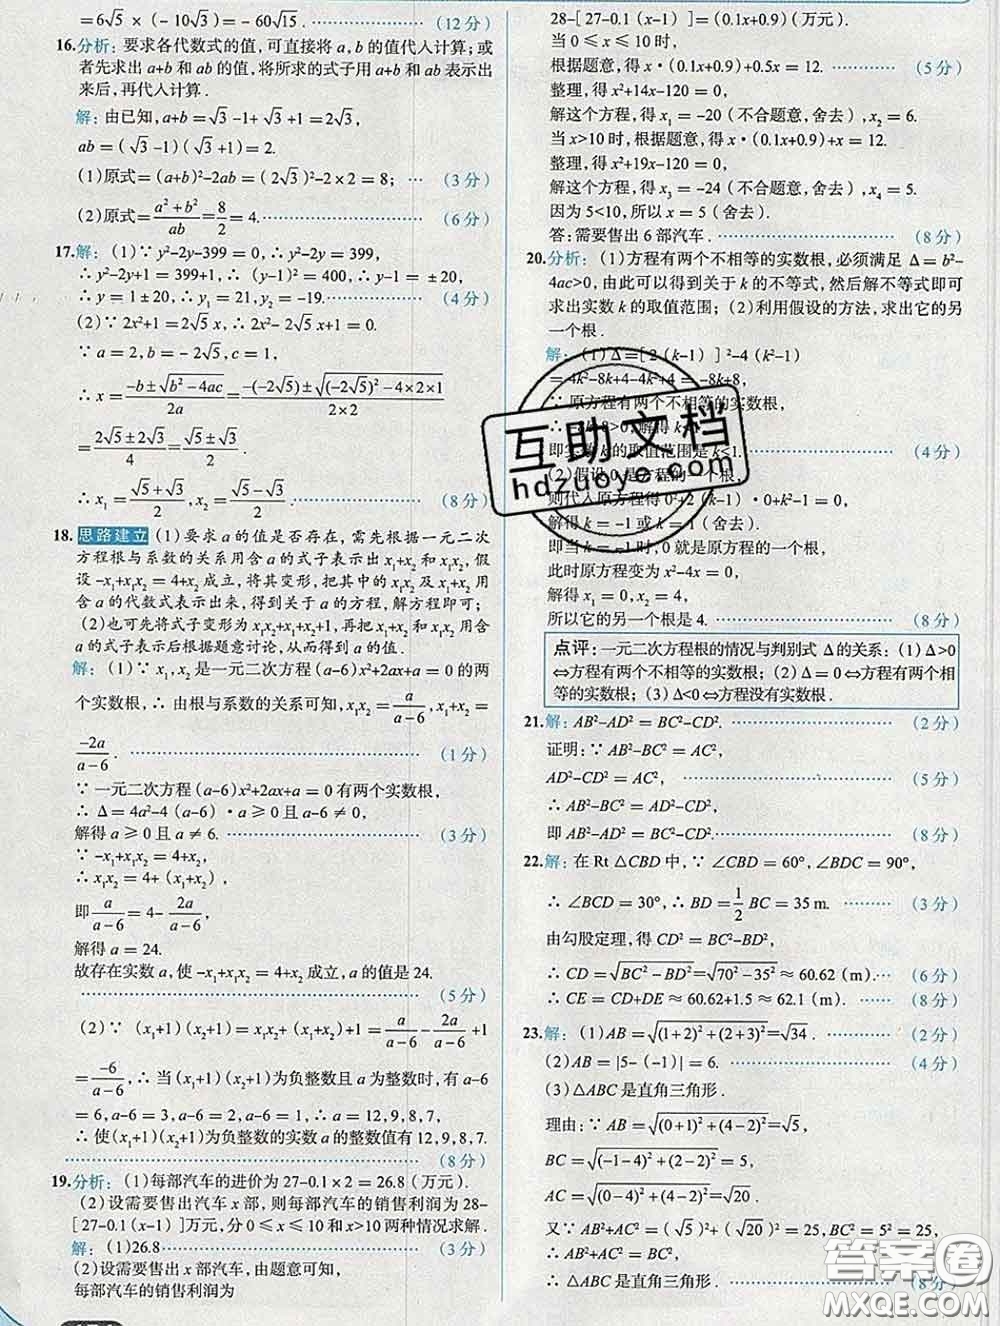 =6√5 ×(-10√3)=-60√15. (12分)
16.分析：要求各代数式的值，可直接将 a，b 的值代入计算；或
者先求出 a+b 和 ab 的值，将所求的式子用 a+b 和 ab 表示出
来后，再代入计算.
解：由已知，a+b=√3-1+√3+1=2√3，
ab=(√3-1)(√3+1)=2.
(1)原式=(a+b)²-2ab=(2√3)²-2×2=8； … (3分)
(2)原式=(a²+b²)/ab=8/2=4. (6分)
17.解：(1)∵ y²-2y-399=0，∴ y²-2y=399，
∴ y²-2y+1=399+1，∴ (y-1)²=400，∴ y-1=±20，
∴ y=1±20，∴ y₁=21，y₂=-19. (4分)
(2)∵ 2x²+1=2√5x，∴ 2x²-2√5x+1=0.
∵ a=2，b=-2√5，c=1，
∴ x=(-b±√(b²-4ac))/2a=(-(-2√5)±√((-2√5)²-4×2×1))/(2×2)
=(2√5±2√3)/4=(√5±√3)/2.
∴ x₁=(√5+√3)/2，x₂=(√5-√3)/2. (8分)
18.思路建立 (1)要求 a 的值是否存在，需先根据一元二次
方程根与系数的关系用含 a 的式子表示出 x₁+x₂ 和 x₁x₂，假
设-x₁+x₁x₂=4+x₂ 成立，将其变形，把其中的 x₁x₂ 及 x₁+x₂ 用
含 a 的代数式表示出来，得到关于 a 的方程，解方程即可；
(2)也可先将式子变形为 x₁x₂+x₁+x₂+1，再把 x₁+x₂ 和 x₁x₂ 用含
a 的式子表示后根据题意讨论，从而得到 a 的值.
解：(1)∵ x₁，x₂ 是一元二次方程(a-6)x²+2ax+a=0 的两
个实数根，∴ 由根与系数的关系可知，x₁x₂=a/(a-6)，x₁+x₂=
-2a/(a-6). (1分)
∵ 一元二次方程(a-6)x²+2ax+a=0 有两个实数根，
∴ Δ=4a²-4(a-6)·a≥0 且 a-6≠0，
解得 a≥0 且 a≠6. (3分)
∵ -x₁+x₁x₂=4+x₂，
∴ x₁x₂=4+(x₁+x₂)，
即 a/(a-6)=4-2a/(a-6)，
解得 a=24.
故存在实数 a，使-x₁+x₁x₂=4+x₂ 成立，a 的值是 24.
(5分)
(2)∵ (x₁+1)(x₂+1)=x₁x₂+(x₁+x₂)+1=a/(a-6)-2a/(a-6)+1
=-6/(a-6)，∴ 当(x₁+1)(x₂+1)为负整数且 a 为整数时，有 a-6
=6，a-6=3，a-6=2，a-6=1，∴ a=12，9，8，7，
∴ 使(x₁+1)(x₂+1)为负整数的实数 a 的整数值有 12，9，8，7.
(8分)
19.分析：(1)每部汽车的进价为 27-0.1×2=26.8(万元).
(2)设需要售出汽车 x 部，则每部汽车的销售利润为 28-
[27-0.1(x-1)]万元，分 0≤x≤10 和 x>10 两种情况求解.
解：(1)26.8 (3分)
(2)设需要售出 x 部汽车，由题意可知，
每部汽车的销售利润为
28-[27-0.1(x-1)]=(0.1x+0.9)(万元).
当 0≤x≤10 时，
根据题意，得 x·(0.1x+0.9)+0.5x=12. (5分)
整理，得 x²+14x-120=0，
解这个方程，得 x₁=-20(不合题意，舍去)，x₂=6.
当 x>10 时，根据题意，得 x·(0.1x+0.9)+x=12.
整理，得 x²+19x-120=0，
解这个方程，得 x₃=-24(不合题意，舍去)，x₄=5.
因为 5<10，所以 x=5(舍去).
答：需要售出 6 部汽车. (8分)
20.分析：(1)方程有两个不相等的实数根，必须满足 Δ=b²-
4ac>0，由此可以得到关于 k 的不等式，然后解不等式即可
求出实数 k 的取值范围；(2)利用假设的方法，求出它的另
一个根.
解：(1)Δ=[2(k-1)]²-4(k²-1)
=4k²-8k+4-4k²+4=-8k+8，
∵ 原方程有两个不相等的实数根，
∴ -8k+8>0，解得 k<1，
即实数 k 的取值范围是 k<1. (4分)
(2)假设 0 是方程的一个根，
则代入原方程得 0²+2(k-1)·0+k²-1=0，
解得 k=-1 或 k=1(舍去).
即当 k=-1 时，0 就是原方程的一个根.
此时原方程变为 x²-4x=0，
解得 x₁=0，x₂=4，
所以它的另一个根是 4. (8分)
点评：一元二次方程根的情况与判别式 Δ 的关系：(1)Δ>0
⇔方程有两个不相等的实数根；(2)Δ=0⇔方程有两个相
等的实数根；(3)Δ<0⇔方程没有实数根.
21.解：AB²-AD²=BC²-CD². (2分)
证明：∵ AB²-BC²=AC²，
AD²-CD²=AC²， (5分)
∴ AB²-BC²=AD²-CD²，
即 AB²-AD²=BC²-CD². (8分)
22.解：在 Rt △CBD 中，∵ ∠CBD=60°，∠BDC=90°，
∴ ∠BCD=30°，∴ BD=1/2BC=35 m. (3分)
由勾股定理，得 CD²=BC²-BD²，
∴ CD=√(BC²-BD²)=√(70²-35²)≈60.62(m). … (6分)
∴ CE=CD+DE≈60.62+1.5≈62.1(m). (8分)
23.解：(1)AB=√((1+2)²+(2+3)²)=√34. (2分)
(2)AB=|5-(-1)|=6. (4分)
(3)△ABC 是直角三角形.
理由：∵ AB=√((0+1)²+(4-2)²)=√5，
BC=√((-1-4)²+(2-2)²)=5，
AC=√((0-4)²+(4-2)²)=√20.
又∵ AB²+AC²=(√5)²+(√20)²=25，BC²=5²=25，
∴ AB²+AC²=BC²，
∴ △ABC 是直角三角形. (8分)
互助文档
hdzuoye.com
答案圈
MXQE.COM